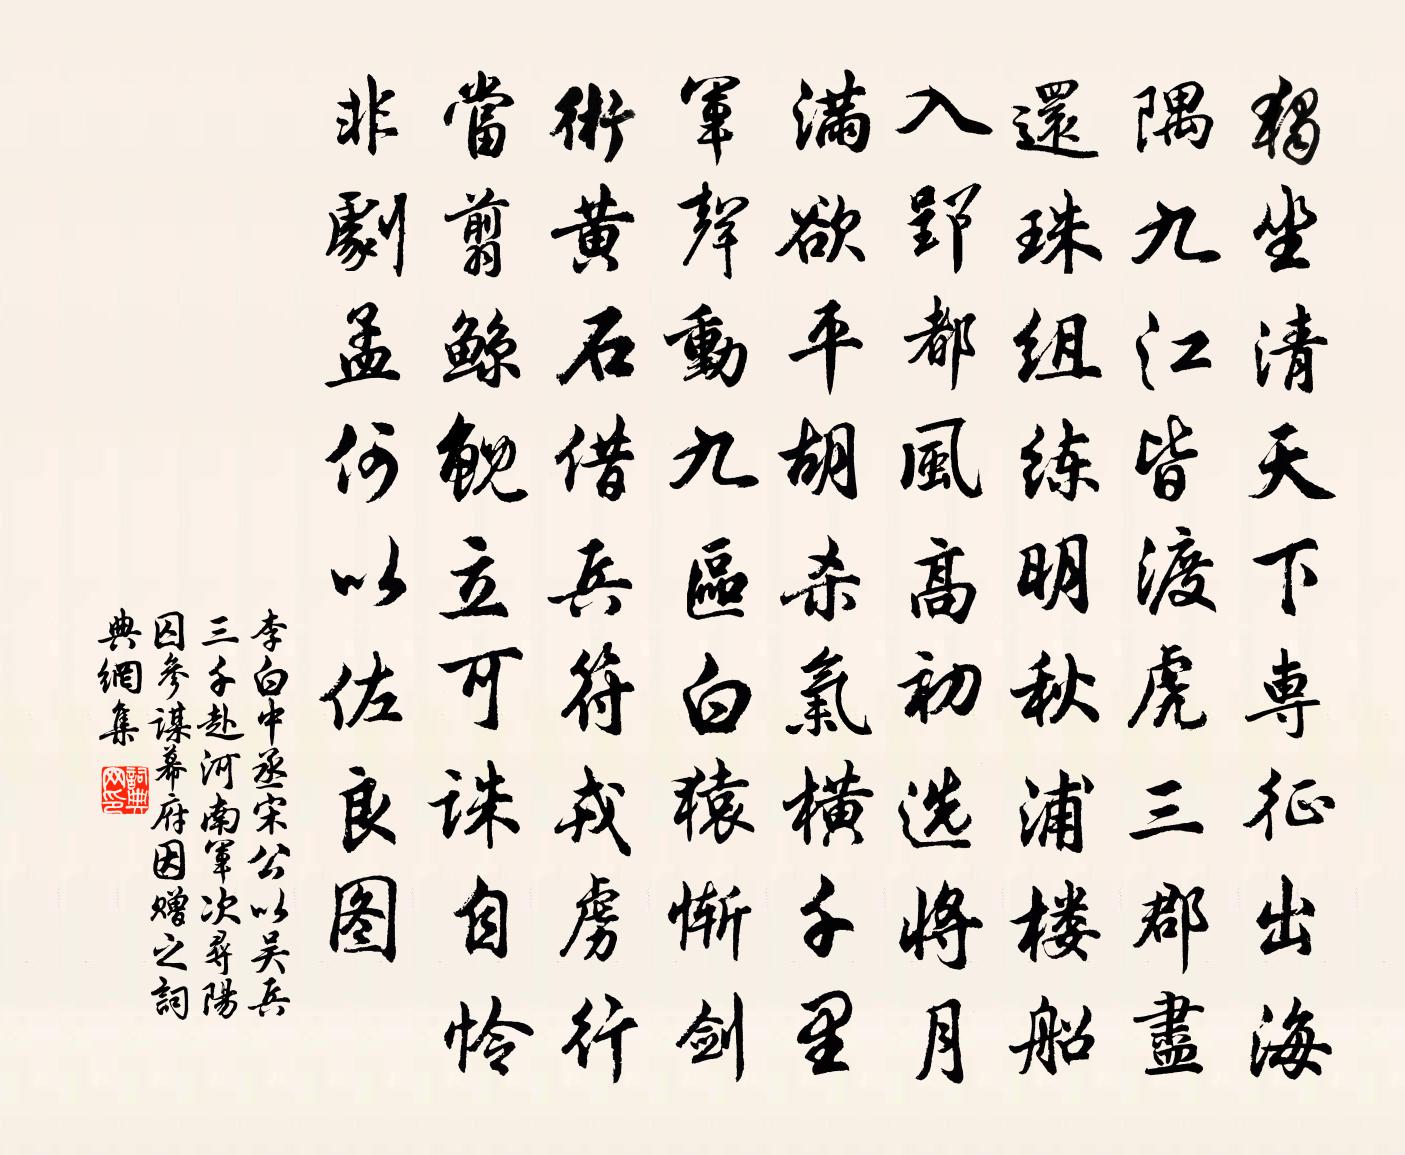 獨坐清天下専征出海
隅九江皆渡虎三郡盡
還珠組练明秋浦楼船
入郢都風高初选將月
满欲平胡杀氣横千里
軍聲動九區白猿惭剑
術黄石借兵符戎虜行
當翦鲸鲵立可诛自怜
非劇孟何以佐良图
李白中丞宋公以吴兵
三千赴河南軍次尋陽
囚參謀幕府因赠之詞
典網集
詞典
网印